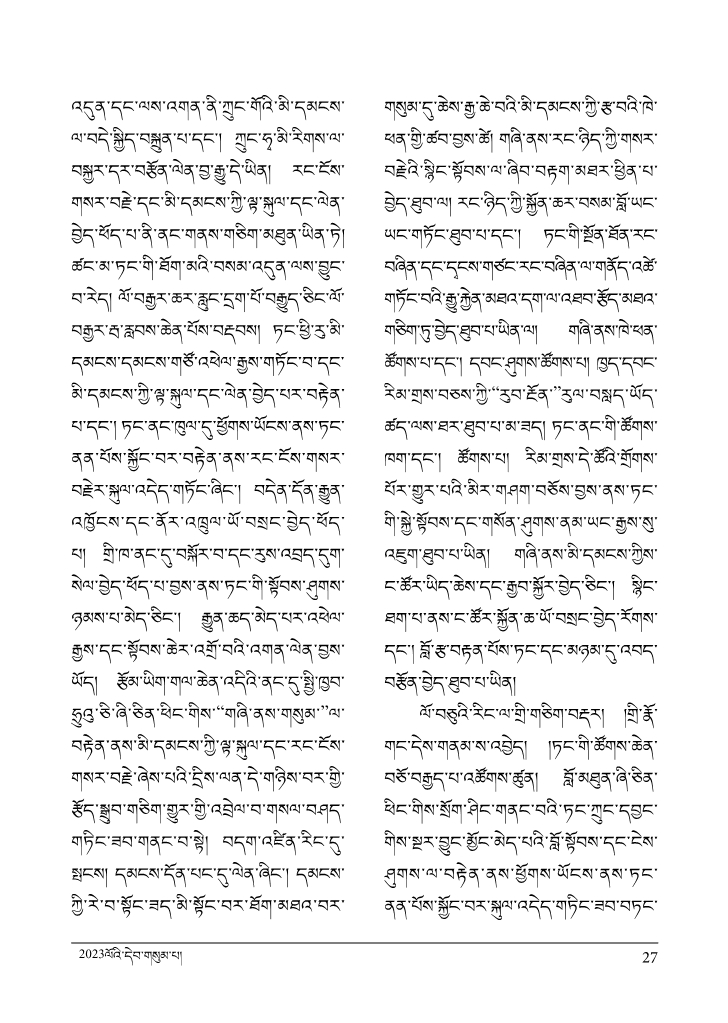 འདུན་དང་ལས་འགན་ནི་ཀྲུང་གོའི་མི་དམངས་
ལ་བདེ་སྐྱིད་བསྐྲུན་པ་དང་། ཀྲུང་ཧྭ་མི་རིགས་ལ་
བསྐྱར་དར་བརྩོན་ལེན་བྱ་རྒྱུ་དེ་ཡིན། རང་ངོས་
གསར་བརྗེ་དང་མི་དམངས་ཀྱི་ལྟ་སྐུལ་དང་ལེན་
བྱེད་ཕོད་པ་ནི་ནང་གནས་གཅིག་མཐུན་ཡིན་ཏེ།
ཚང་མ་ཏང་གི་ཐོག་མའི་བསམ་འདུན་ལས་བྱུང་
བ་རེད། ལོ་བརྒྱར་ཆར་རླུང་དྲག་པོ་བརྒྱུད་ཅིང་ལོ་
བརྒྱར་རྦ་རླབས་ཆེན་པོས་བརྡབས། ཏང་ཕྱི་རུ་མི་
དམངས་དམངས་གཙོ་འཕེལ་རྒྱས་གཏོང་བ་དང་
མི་དམངས་ཀྱི་ལྟ་སྐུལ་དང་ལེན་བྱེད་པར་བརྟེན་
པ་དང་། ཏང་ནང་ཁུལ་དུ་ཕྱོགས་ཡོངས་ནས་ཏང་
ནན་པོས་སྐྱོང་བར་བརྟེན་ནས་རང་ངོས་གསར་
བརྗེར་སྐུལ་འདེད་གཏོང་ཞིང་། བདེན་དོན་རྒྱུན་
འཁྱོངས་དང་ནོར་འཁྲུལ་ཡོ་བསྲང་བྱེད་ཕོད་
པ། གྲི་ཁ་ནང་དུ་བསྐོར་བ་དང་རུས་འབྲད་དུག་
སེལ་བྱེད་ཕོད་པ་བྱས་ནས་ཏང་གི་སྟོབས་ཤུགས་
ཉམས་པ་མེད་ཅིང་། རྒྱུན་ཆད་མེད་པར་འཕེལ་
རྒྱས་དང་སྟོབས་ཆེར་འགྲོ་བའི་འགན་ལེན་བྱས་
ཡོད། རྩོམ་ཡིག་གལ་ཆེན་འདིའི་ནང་དུ་སྤྱི་ཁྱབ་
ཧྲུའུ་ཅི་ཞི་ཅིན་ཕིང་གིས་“གཞི་ནས་གསུམ་”ལ་
བརྟེན་ནས་མི་དམངས་ཀྱི་ལྟ་སྐུལ་དང་རང་ངོས་
གསར་བརྗེ་ཞེས་པའི་དྲིས་ལན་དེ་གཉིས་བར་གྱི་
རྩོད་སྒྲུབ་གཅིག་གྱུར་གྱི་འབྲེལ་བ་གསལ་བཤད་
གཏིང་ཟབ་གནང་བ་སྟེ། བདག་འཛིན་རིང་དུ་
སྤངས། དམངས་དོན་པང་དུ་ལེན་ཞིང་། དམངས་
ཀྱི་རེ་བ་སྟོང་ཟད་མི་སྟོང་བར་ཐོག་མཐའ་བར་
གསུམ་དུ་ཆེས་རྒྱ་ཆེ་བའི་མི་དམངས་ཀྱི་རྩ་བའི་ཁེ་
ཕན་གྱི་ཚབ་བྱས་ཚེ། གཞི་ནས་རང་ཉིད་ཀྱི་གསར་
བརྗེའི་སྙིང་སྟོབས་ལ་ཞིབ་བརྟག་མཐར་ཕྱིན་པ་
བྱེད་ཐུབ་ལ། རང་ཉིད་ཀྱི་སྐྱོན་ཆར་བསམ་བློ་ཡང་
ཡང་གཏོང་ཐུབ་པ་དང་། ཏང་གི་སྔོན་ཐོན་རང་
བཞིན་དང་དྭངས་གཙང་རང་བཞིན་ལ་གནོད་འཚེ་
གཏོང་བའི་རྒྱུ་རྐྱེན་མཐའ་དག་ལ་འཐབ་རྩོད་མཐའ་
གཅིག་ཏུ་བྱེད་ཐུབ་པ་ཡིན་ལ། གཞི་ནས་ཁེ་ཕན་
ཚོགས་པ་དང་། དབང་ཤུགས་ཚོགས་པ། ཁྱད་དབང་
རིམ་གྲས་བཅས་ཀྱི་“རུབ་རྔོན་”རུལ་བསླད་ཡོད་
ཚད་ལས་ཐར་ཐུབ་པ་མ་ཟད། ཏང་ནང་གི་ཚོགས་
ཁག་དང་། ཚོགས་པ། རིམ་གྲས་དེ་ཚོའི་གྲོགས་
པོར་གྱུར་པའི་མིར་གཤག་བཅོས་བྱས་ནས་ཏང་
གི་སྐྱེ་སྟོབས་དང་གསོན་ཤུགས་ནམ་ཡང་རྒྱས་སུ་
འཇུག་ཐུབ་པ་ཡིན། གཞི་ནས་མི་དམངས་ཀྱིས་
ང་ཚོར་ཡིད་ཆེས་དང་རྒྱབ་སྐྱོར་བྱེད་ཅིང་། སྙིང་
ཐག་པ་ནས་ང་ཚོར་སྐྱོན་ཆ་ཡོ་བསྲང་བྱེད་རོགས་
དང་། བློ་རྩ་བརྟན་པོས་ཏང་དང་མཉམ་དུ་འབད་
བརྩོན་བྱེད་ཐུབ་པ་ཡིན།
ལོ་བཅུའི་རིང་ལ་གྲི་གཅིག་བརྡར། །གྲི་རྣོ་
གང་དེས་གནམ་ས་འབྱེད། །ཏང་གི་ཚོགས་ཆེན་
བཅོ་བརྒྱད་པ་འཚོགས་ཚུན། བློ་མཐུན་ཞི་ཅིན་
ཕིང་གིས་སྲོག་ཤིང་གནང་བའི་ཏང་ཀྲུང་དབྱང་
གིས་སྔར་བྱུང་མྱོང་མེད་པའི་བློ་སྟོབས་དང་ངེས་
ཤུགས་ལ་བརྟེན་ནས་ཕྱོགས་ཡོངས་ནས་ཏང་
ནན་པོས་སྐྱོང་བར་སྐུལ་འདེད་གཏིང་ཟབ་བཏང་
2023ལོའི་དེབ་གསུམ་པ།
27